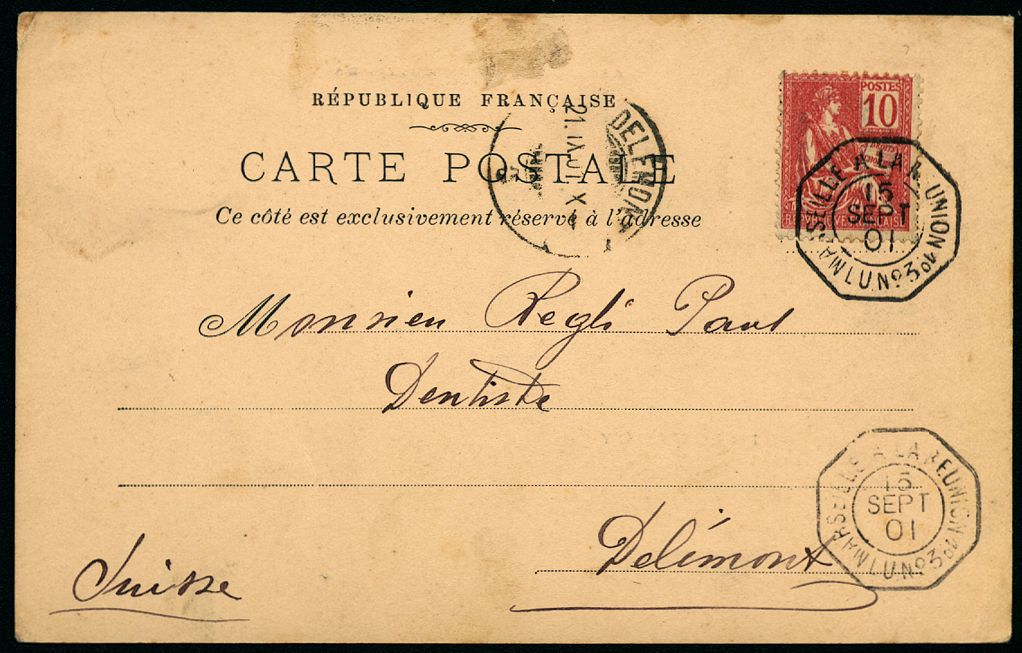 RÉPUBLIQUE FRANÇAISE
CARTE POSTALE
Ce côté est exclusivement réservé à l'adresse
POSTES
10
MARSEILLE A LA RÉUNION
LU Nº3
15
SEPT
01
DELÉMONT
21.IX.01
X
Monsieu Regli Paul
Dentiste
Delémont
Suisse
MARSEILLE A LA REUNION
LU Nº3
15
SEPT
01